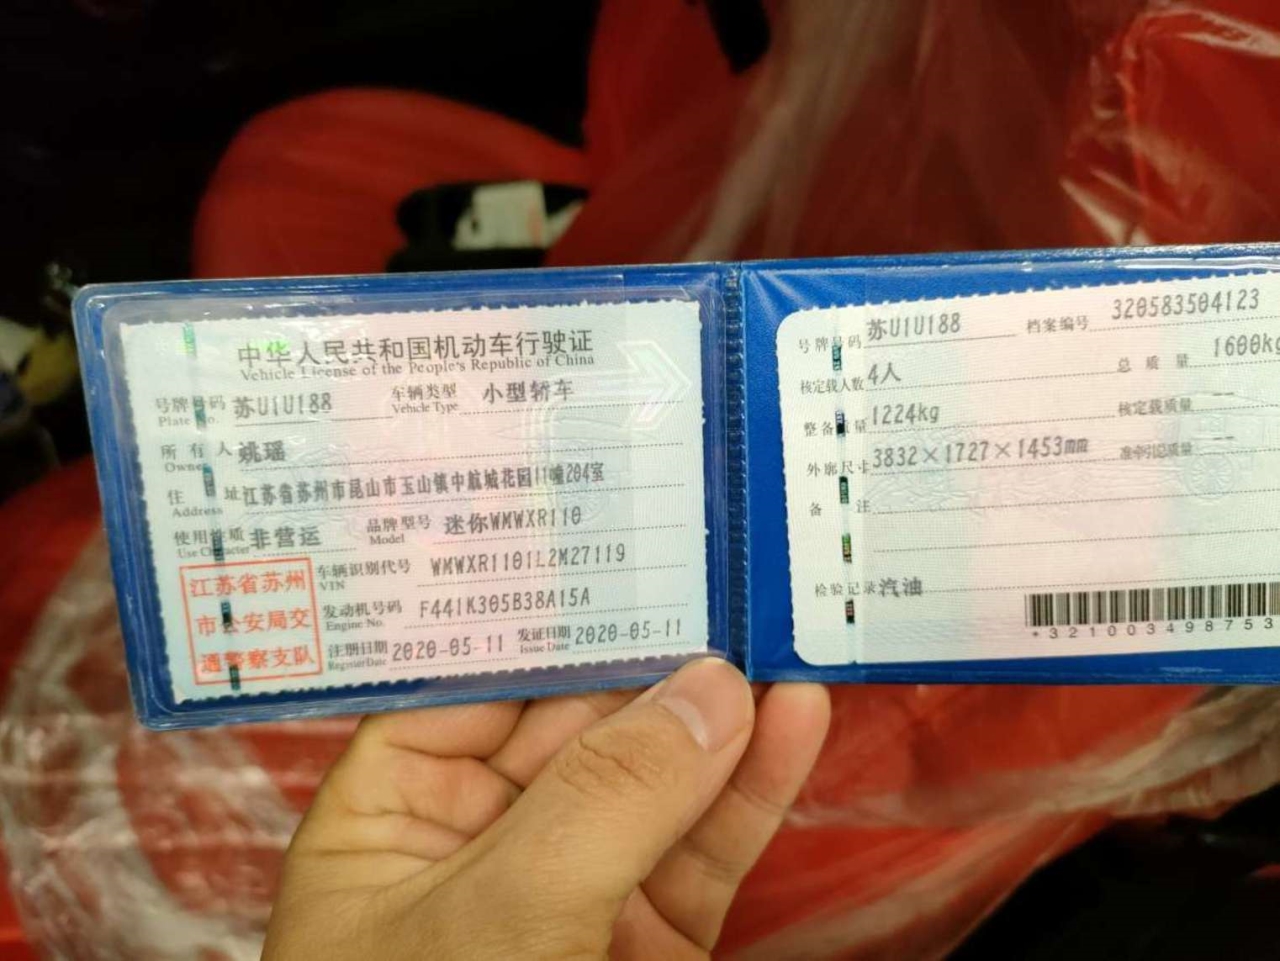 中华人民共和国机动车行驶证
Vehicle License of the People's Republic of China
号牌号码 苏U1U188 车辆类型 小型轿车
Plate No. Vehicle Type
所有人 姚瑶
Owner
住址 江苏省苏州市昆山市玉山镇中航城花园11幢204室
Address
使用性质 非营运 品牌型号 迷你WMWXR110
Use Character Model
江苏省苏州
市公安局交
通警察支队
车辆识别代号 WMWXR1101L2M27119
VIN
发动机号码 F441K305B38A15A
Engine No.
注册日期 2020-05-11 发证日期 2020-05-11
Register Date Issue Date
号牌号码 苏U1U188 档案编号 320583504123
核定载人数 4人 总质量 1600kg
整备质量 1224kg 核定载质量 --
外廓尺寸 3832×1727×1453mm 准牵引总质量 --
备注
检验记录 汽油
*321003498753